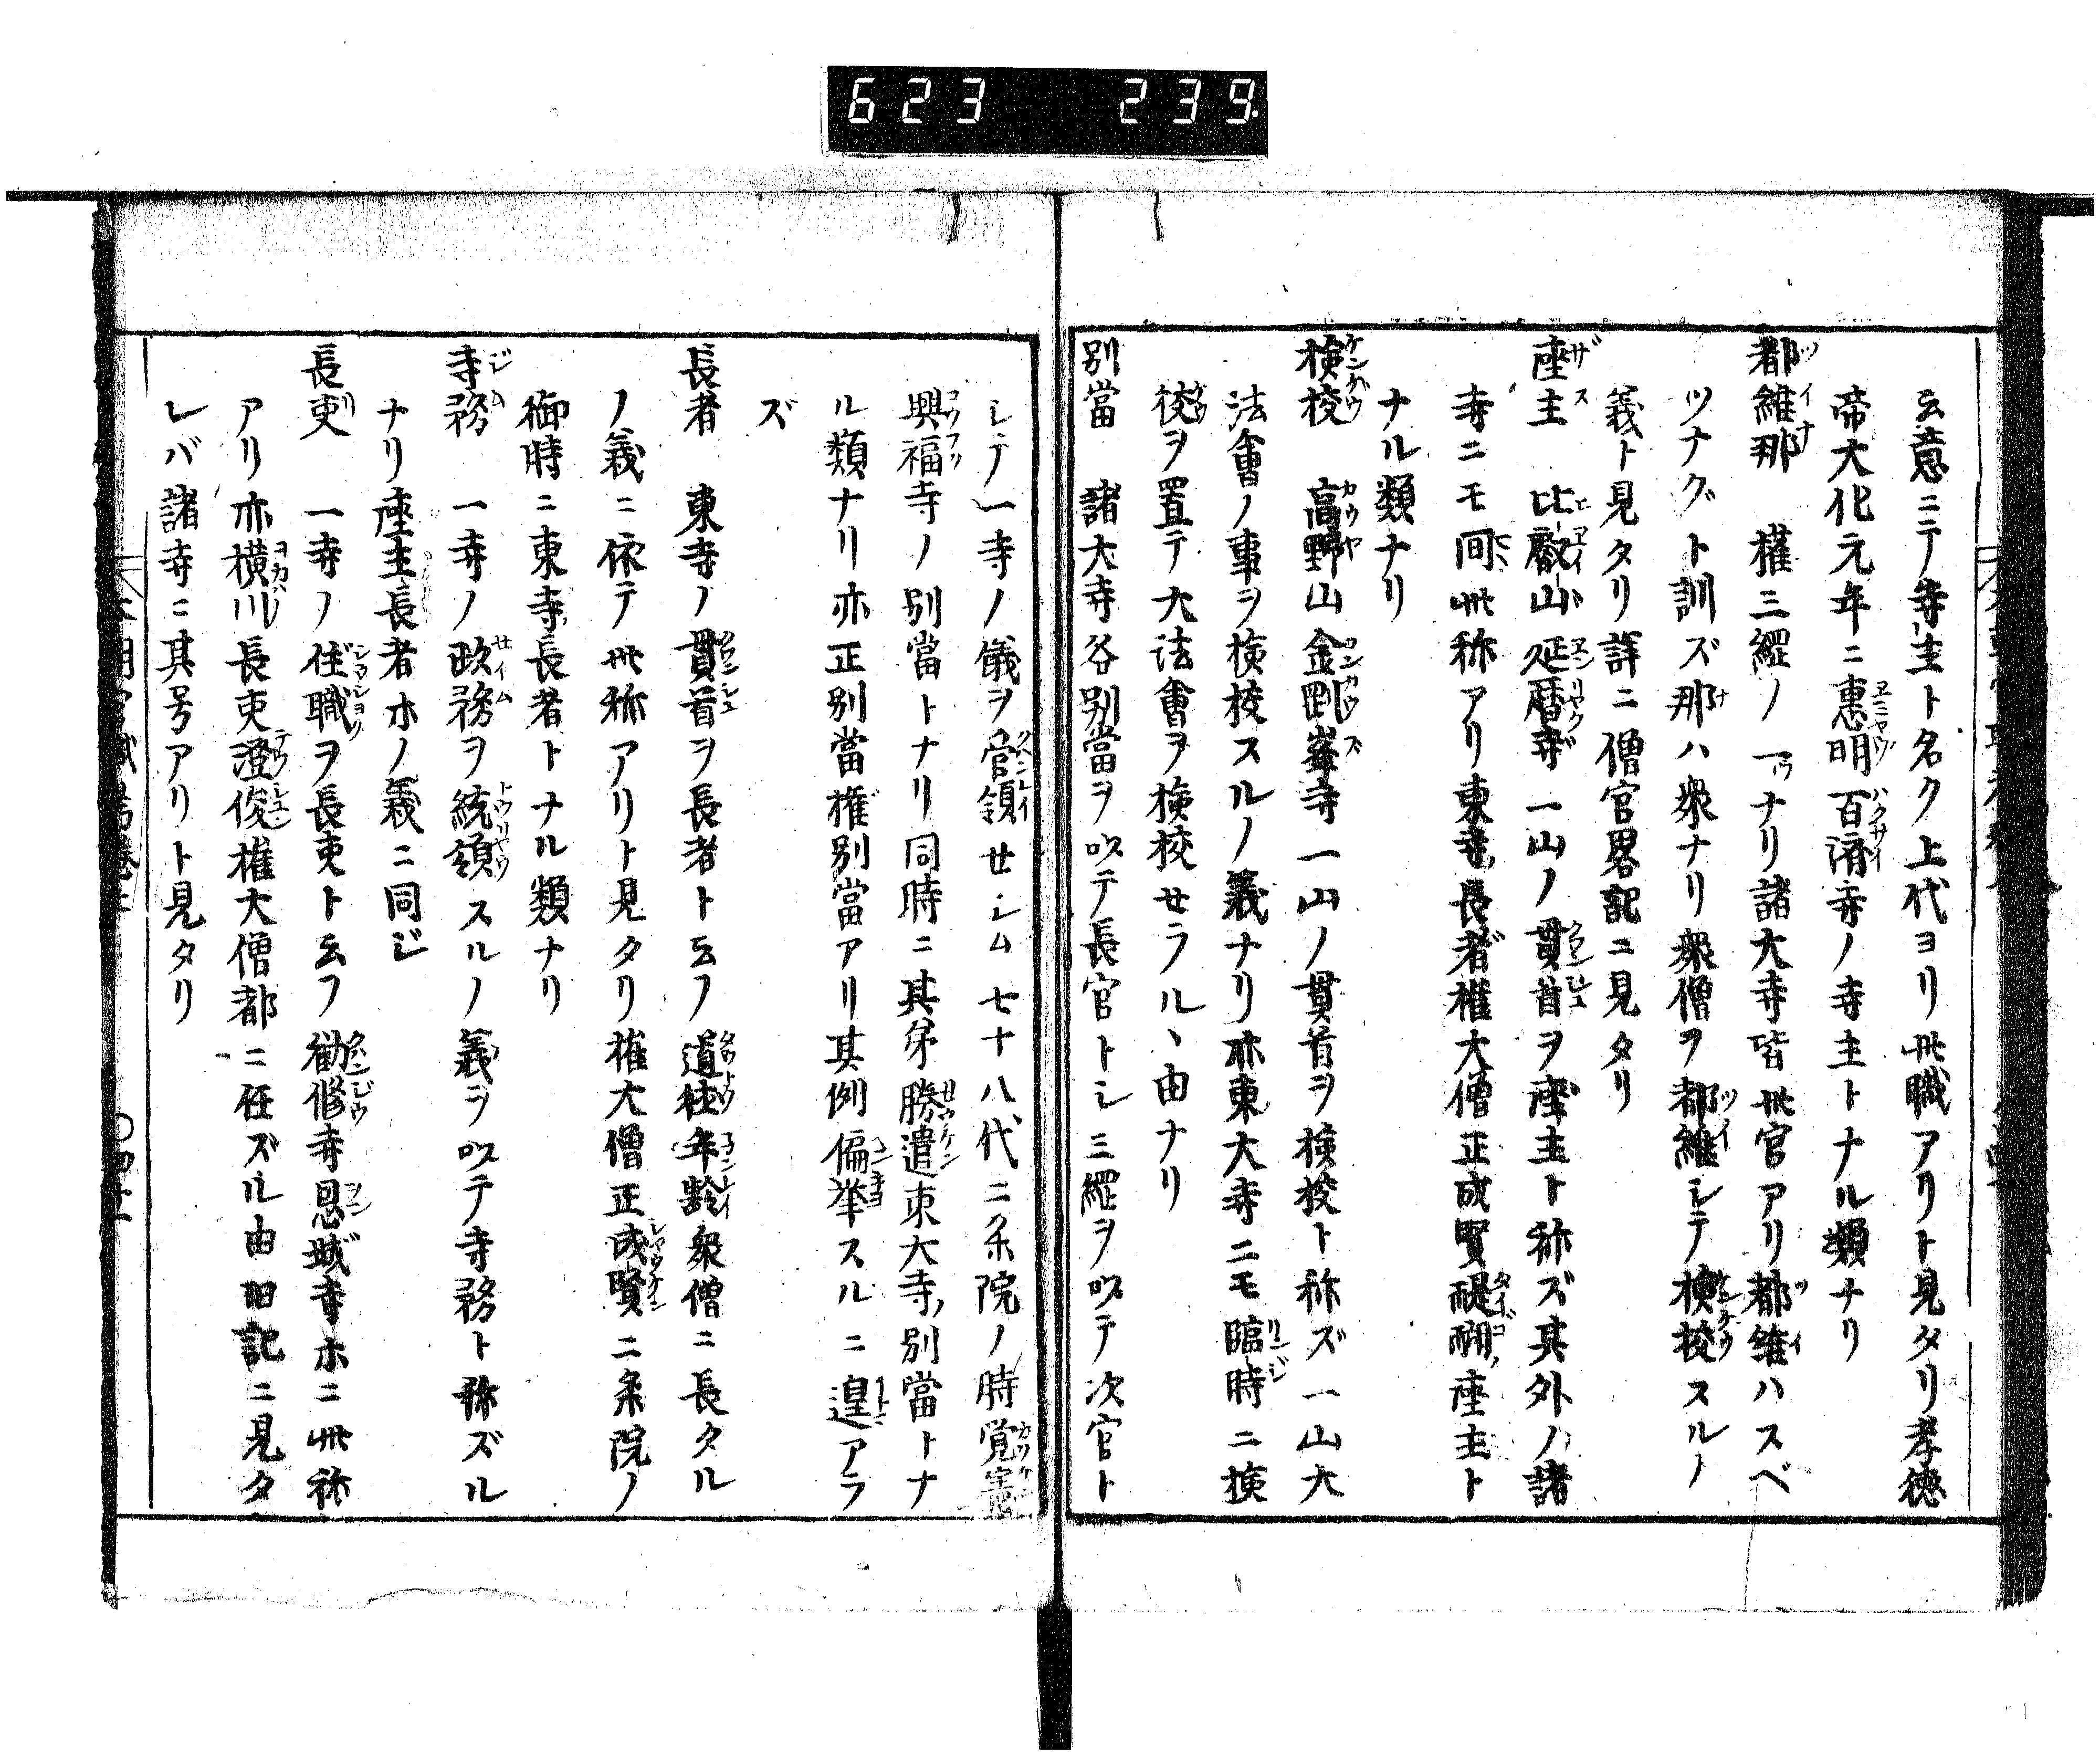 623 239
云意ニテ寺主ト名ク上代ヨリ此職アリト見タリ孝徳
帝大化元年ニ惠明百濟寺ノ寺主トナル類ナリ
都維那 權三綱ノ一ツナリ諸大寺皆此官アリ都維ハスベ
ツナグト訓ズ那ハ衆ナリ衆僧ヲ都維シテ検校スルノ
義ト見タリ詳ニ僧官畧記ニ見タリ
座主 比叡山延暦寺一山ノ貫首ヲ座主ト称ズ其外ノ諸
寺ニモ间此称アリ東寺ノ長者権大僧正成賢醍醐ノ座主ト
ナル類ナリ
検校 高野山金剛峯寺一山ノ貫首ヲ検校ト称ズ一山大
法會ノ事ヲ検校スルノ義ナリ亦東大寺ニモ臨時ニ検
校ヲ置テ大法會ヲ検校セラルヽ由ナリ
別當 諸大寺各別當ヲ以テ長官トシ三綱ヲ以テ次官ト
シテ一寺ノ儀ヲ管領せシム七十八代二条院ノ時覚
興福寺ノ別當トナリ同時ニ其弟勝遣東大寺ノ別當トナ
ル類ナリ亦正別當権別當アリ其例偏挙スルニ遑アラ
ズ
長者 東寺ノ貫首ヲ長者ト云フ道徳年齢衆僧ニ長タル
ノ義ニ依テ此称アリト見タリ権大僧正成賢二条院ノ
御時ニ東寺ノ長者トナル類ナリ
寺務 一寺ノ政務ヲ統領スルノ義ヲ以テ寺務ト称ズル
ナリ座主長者ホノ義ニ同ジ
長吏 一寺ノ住職ヲ長吏ト云フ勧修寺恩城寺ホニ此称
アリ亦横川長吏澄俊権大僧都ニ任ズル由旧記ニ見タ
レバ諸寺ニ其号アリト見タリ